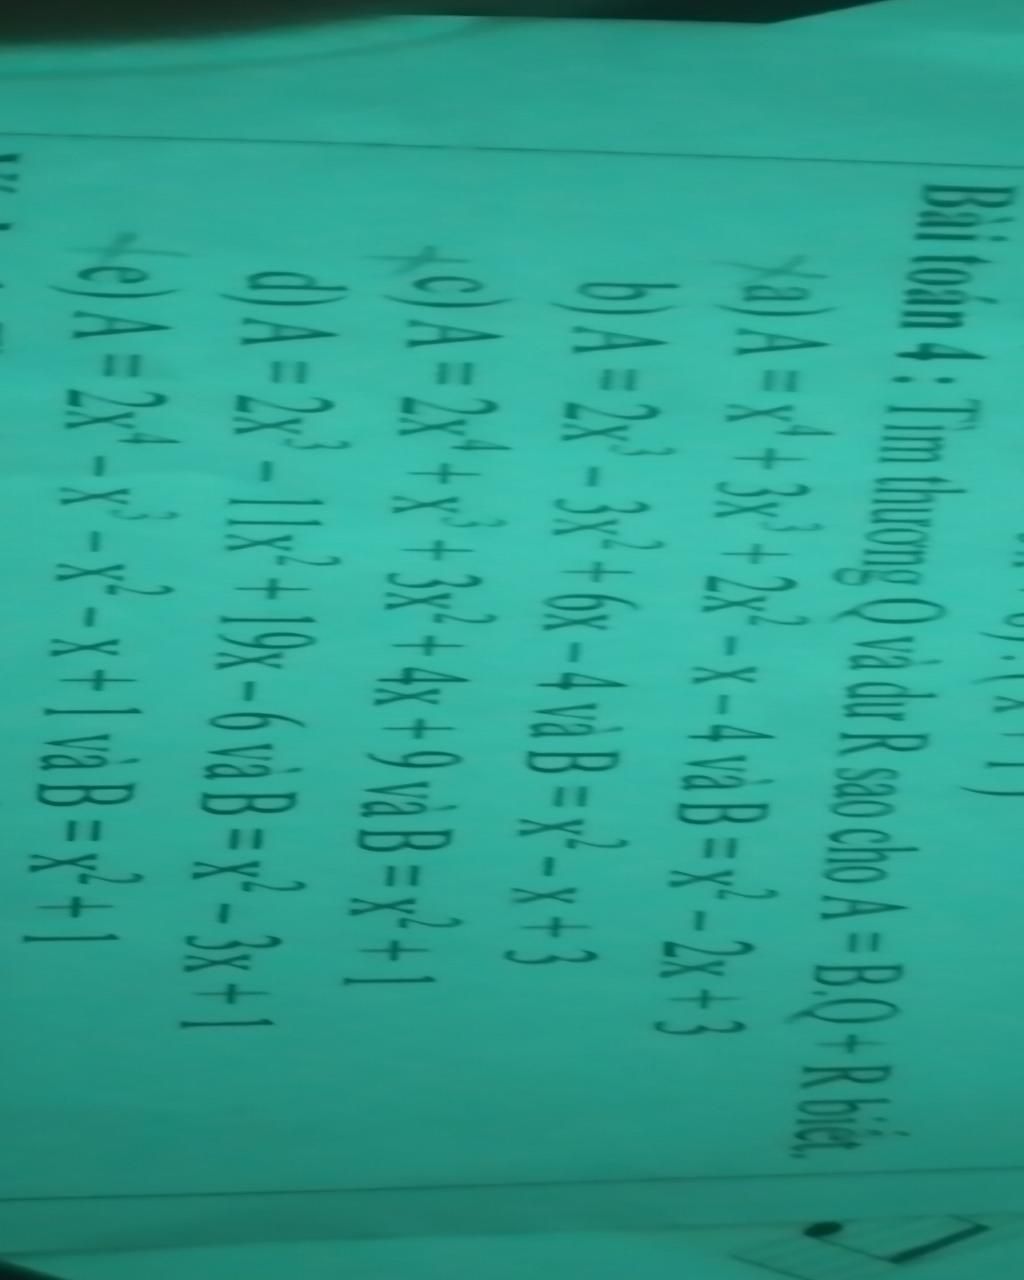 Bài toán 4 : Tìm thương Q và dư R sao cho A = B.Q + R biết,
a) A = x⁴ + 3x³ + 2x² - x - 4 và B = x² - 2x + 3
b) A = 2x³ - 3x² + 6x - 4 và B = x² - x + 3
c) A = 2x⁴ + x³ + 3x² + 4x + 9 và B = x² + 1
d) A = 2x³ - 11x² + 19x - 6 và B = x² - 3x + 1
e) A = 2x⁴ - x³ - x² - x + 1 và B = x² + 1